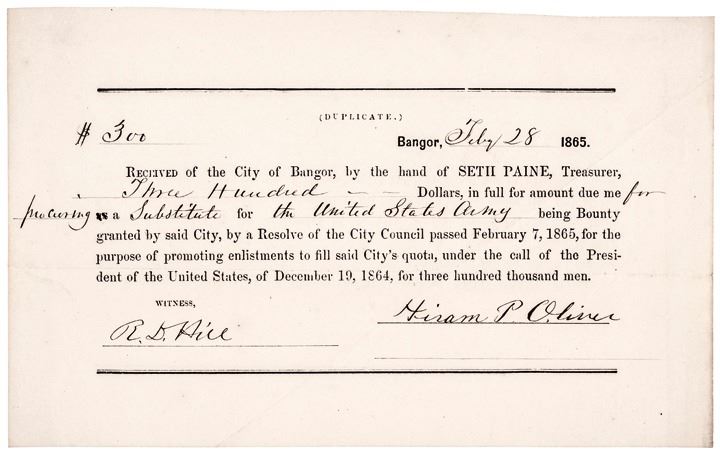 (DUPLICATE.)
$ 300
Bangor, Feby 28 1865.
RECEIVED of the City of Bangor, by the hand of SETH PAINE, Treasurer,
Three Hundred — — Dollars, in full for amount due me for
procuring as a Substitute for the United States Army being Bounty
granted by said City, by a Resolve of the City Council passed February 7, 1865, for the
purpose of promoting enlistments to fill said City's quota, under the call of the Presi-
dent of the United States, of December 19, 1864, for three hundred thousand men.
WITNESS,
Hiram P. Oliver
R. D. Hill